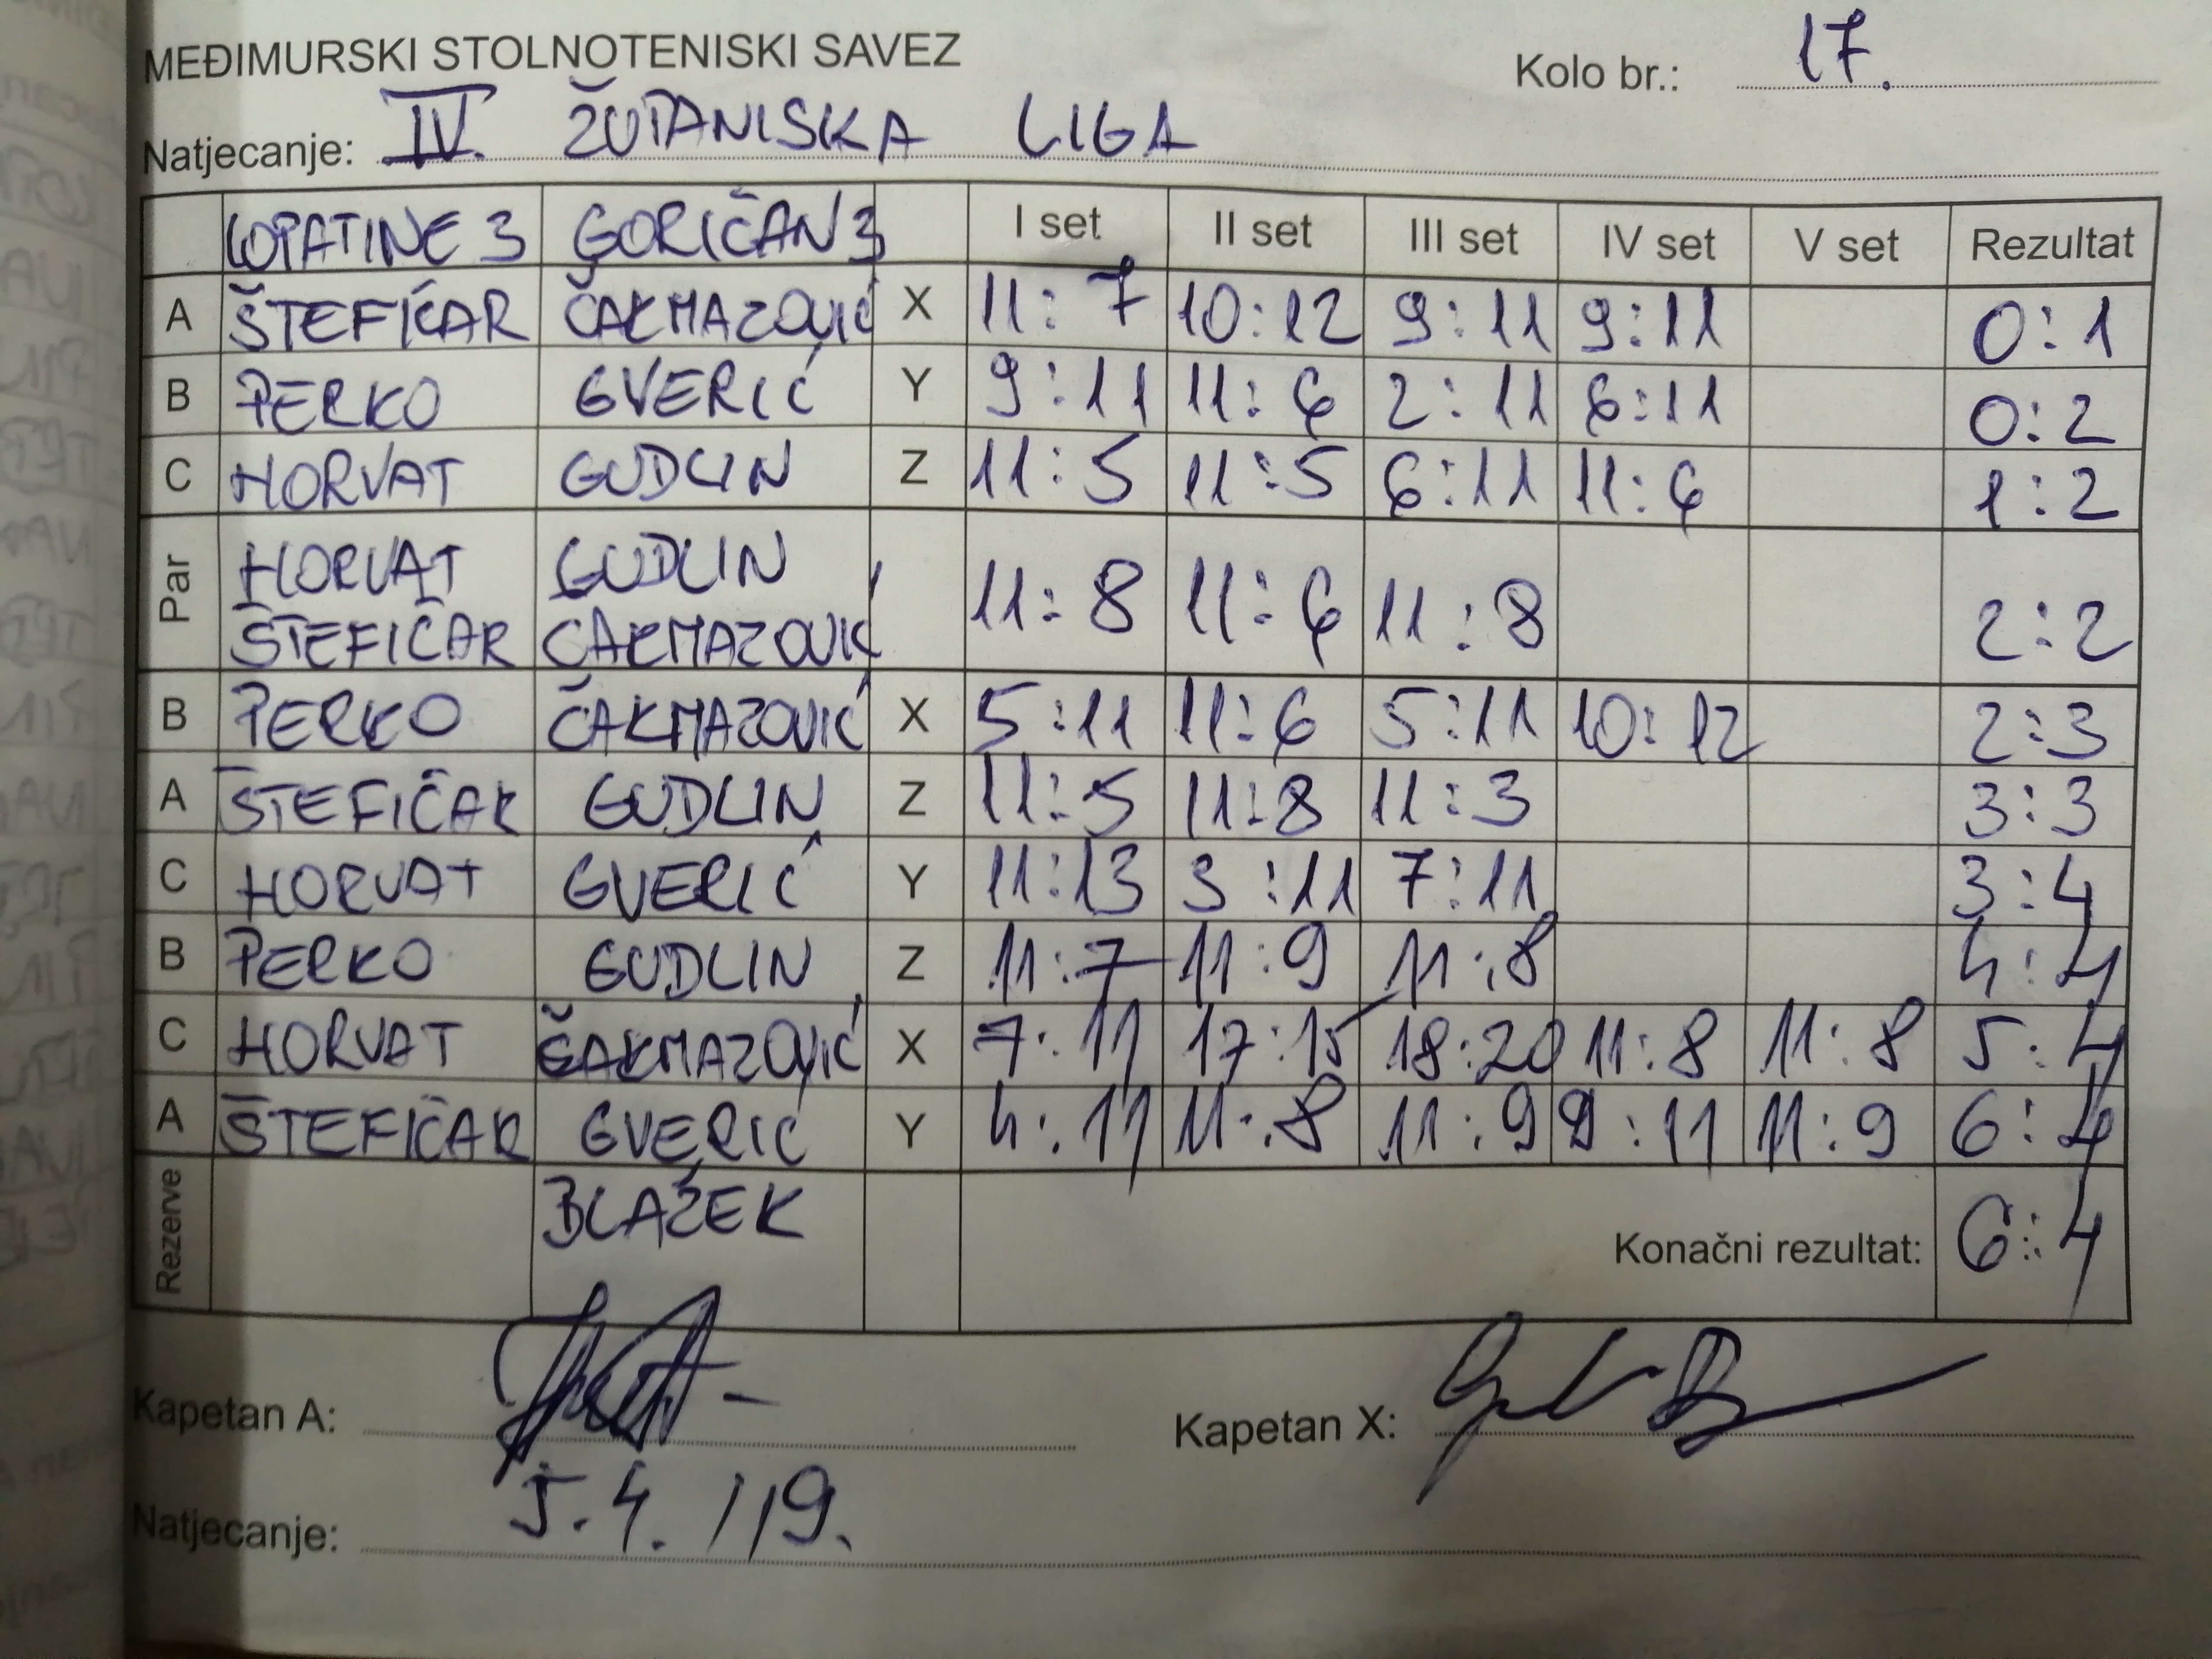 MEĐIMURSKI STOLNOTENISKI SAVEZ
Kolo br.: 17.
Natjecanje: IV. ŽUPANISKA LIGA
LOPATINE 3 GORIČAN 3 I set II set III set IV set V set Rezultat
A ŠTEFIČAR ČAKMAZOVIĆ X 11:7 10:12 9:11 9:11 0:1
B PERKO GVERIĆ Y 9:11 11:6 2:11 6:11 0:2
C HORVAT GUDLIN Z 11:5 11:5 6:11 11:6 1:2
Par HORVAT GUDLIN 11:8 11:6 11:8 2:2
ŠTEFIČAR ČAKMAZOVIĆ
B PERKO ČAKMAZOVIĆ X 5:11 11:6 5:11 10:12 2:3
A ŠTEFIČAR GUDLIN Z 11:5 11:8 11:3 3:3
C HORVAT GVERIĆ Y 11:13 3:11 7:11 3:4
B PERKO GUDLIN Z 11:7 11:9 11:8 4:4
C HORVAT ČAKMAZOVIĆ X 7:11 17:15 18:20 11:8 11:8 5:4
A ŠTEFIČAR GVERIĆ Y 4:11 11:8 11:9 9:11 11:9 6:4
Rezerve BLAŽEK Konačni rezultat: 6:4
Kapetan A:
Kapetan X:
Natjecanje: 5.4./19.